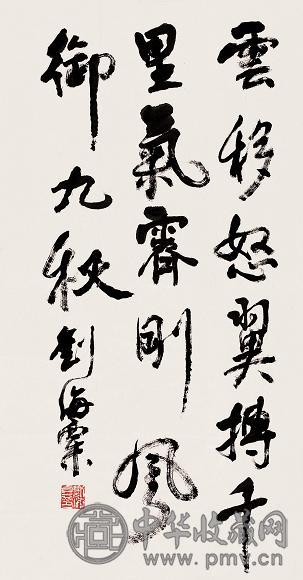 雲移怒翼摶千
里氣霽剛風
御九秋劉海粟
中华收藏网
www.pmv.cn